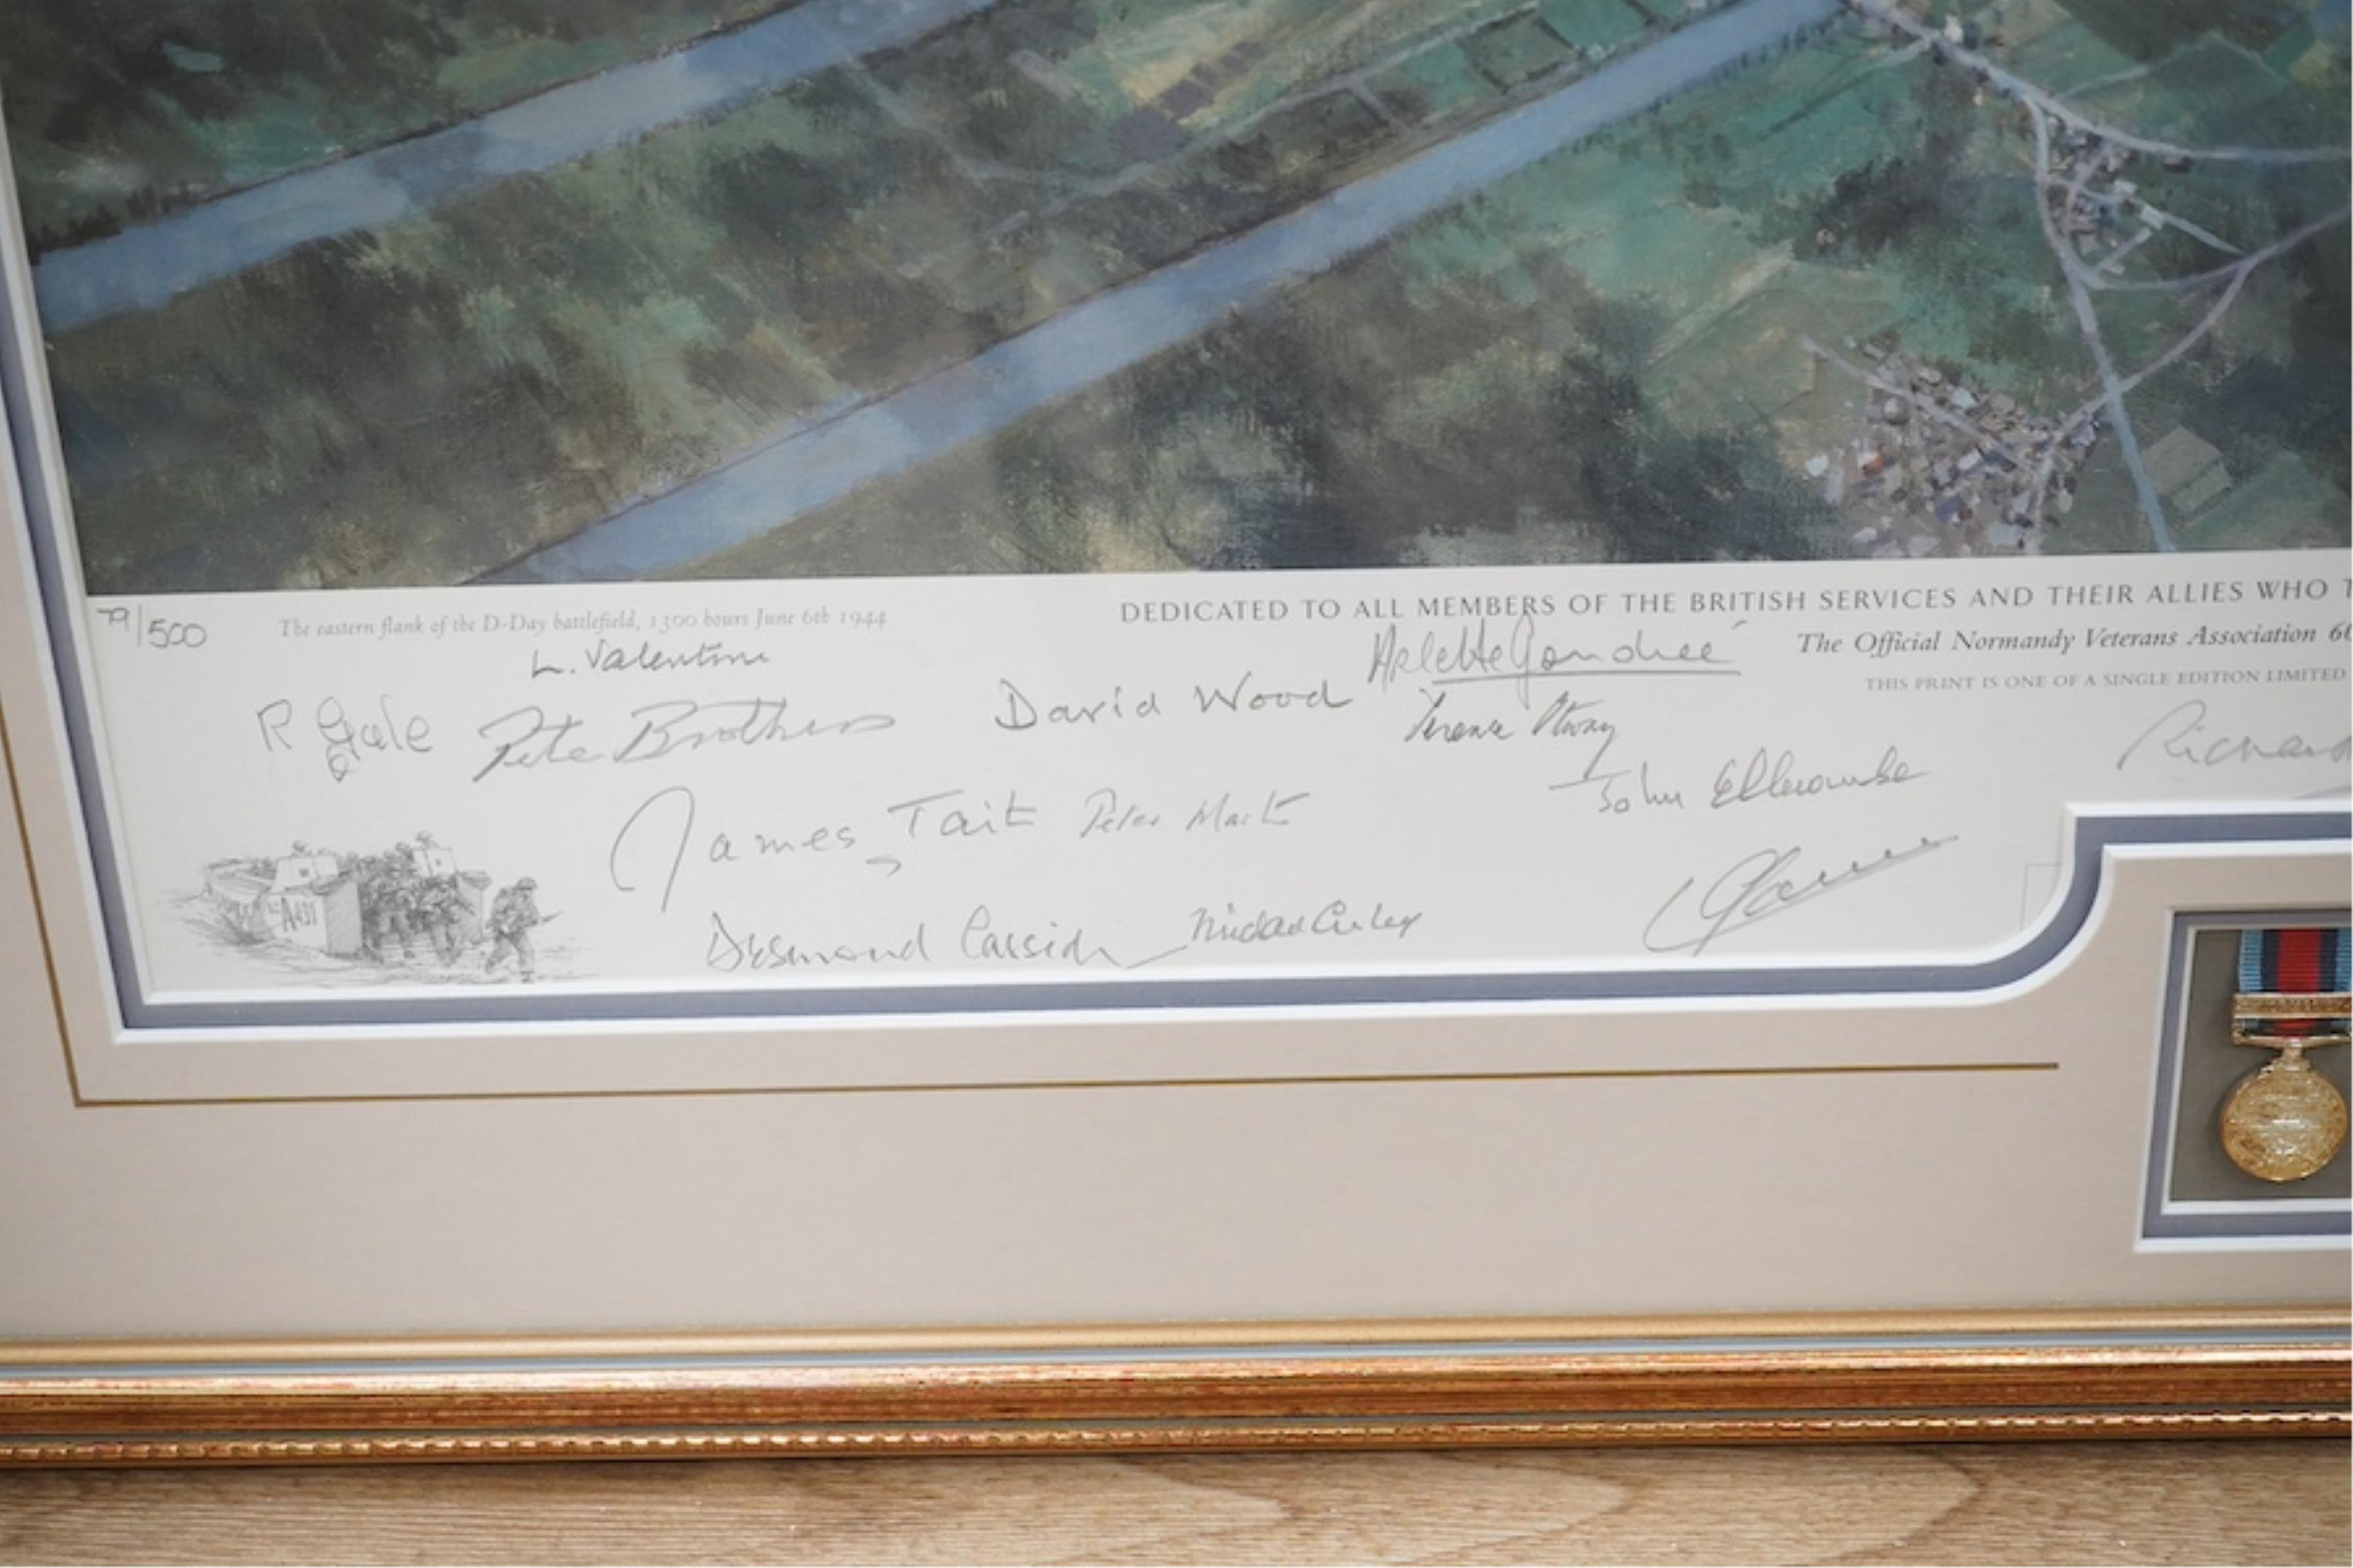 79/500
The eastern flank of the D-Day battlefield, 1300 hours June 6th 1944
DEDICATED TO ALL MEMBERS OF THE BRITISH SERVICES AND THEIR ALLIES WHO
The Official Normandy Veterans Association 60
THIS PRINT IS ONE OF A SINGLE EDITION LIMITED
L. Valentine
Arlette Gondrée
R Gale
Pete Brothers
David Wood
Terence Otway
Richard
John Ellicombe
James Tait
Peter
Desmond Cassidy
A431